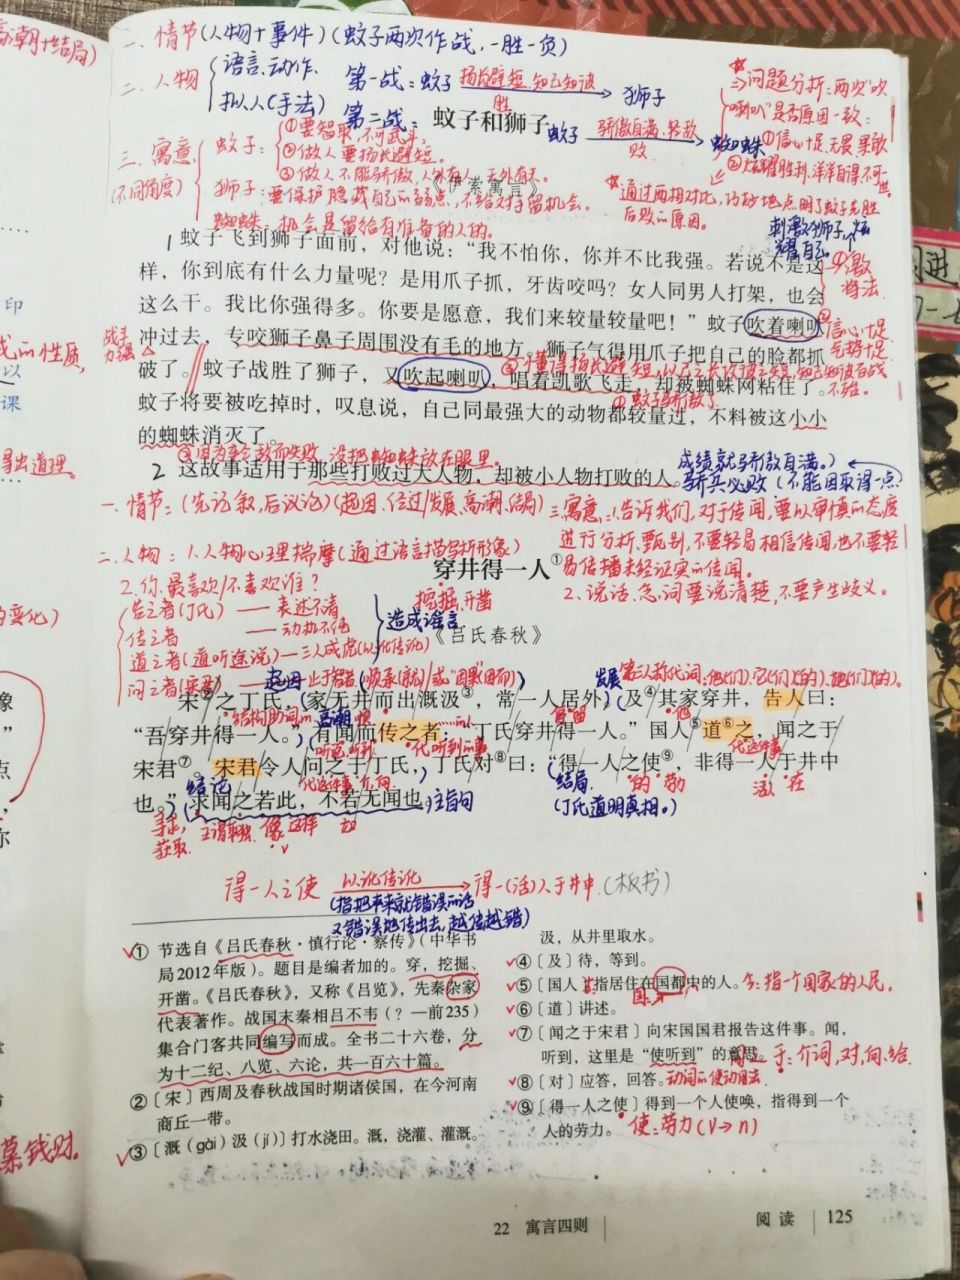 一、情节(人物+事件)(蚊子两次作战,一胜一负)
二、人物
语言、动作.
拟人(手法)
第一战:蚊子 扬长避短.知己知彼 胜 狮子
第二战: 蚊子 骄傲自满、轻敌 败 蜘蛛
⇒问题分析:两次"吹
喇叭"是否原因一致:
①信心十足、无畏、果敢
②炫耀胜利,洋洋自得
蚊子和狮子
三、寓意:
(不同角度)
蚊子:
①要智取,不可武斗,
②做人要扬长避短.
③做人不能骄傲,人外有人,天外有天。
狮子:要保护隐藏自己的弱点,不给对手留机会。
蜘蛛:机会是留给有准备的人的。
《伊索寓言》
通过两相对比,巧妙地点明了蚊子先胜
后败的原因。
刺激狮子,炫
耀自己
激
将法
1 蚊子飞到狮子面前,对他说:“我不怕你,你并不比我强。若说不是这
样,你到底有什么力量呢?是用爪子抓,牙齿咬吗?女人同男人打架,也会
这么干。我比你强得多。你要是愿意,我们来较量较量吧!”蚊子吹着喇叭
信心十足
气势十足
冲过去,专咬狮子鼻子周围没有毛的地方。狮子气得用爪子把自己的脸都抓
②懂得扬长避短,以己之长攻彼之短,知己知彼百战
不殆。
破了。蚊子战胜了狮子,又吹起喇叭,唱着凯歌飞走,却被蜘蛛网粘住了。
①蚊子骄傲了
蚊子将要被吃掉时,叹息说,自己同最强大的动物都较量过,不料被这小小
的蜘蛛消灭了。
③因为轻敌而失败,没把蜘蛛放在眼里。
2 这故事适用于那些打败过大人物,却被小人物打败的人。
成绩就骄傲自满。)
骄兵必败(不能因取得一点
一、情节:(先记叙,后议论)(起因、经过/发展、高潮、结局)
三、寓意:1.告诉我们,对于传闻,要以审慎的态度
进行分析、甄别,不要轻易相信传闻,也不要轻
易传播未经证实的传闻。
2.说话、忘词要说清楚,不要产生歧义。
二、人物:1.人物心理揣摩(通过语言描写析形象)
2.你最喜欢/不喜欢谁?
穿井得一人①
挖掘,开凿
告之者(丁氏)——表述不清
传之者——动机不纯
道之者(道听途说)—三人成虎(以讹传讹)
造成谣言
《吕氏春秋》
问之者(宋君)——止于智者
起因
发展
第三人称代词:他(们)、它(们)(的)、她(们)(的)。
宋②之丁氏,家无井而出溉汲③,常一人居外。及④其家穿井,告人曰:
“吾穿井得一人。”有闻而传之者:“丁氏穿井得一人。”国人⑤道⑥之,闻之于
宋君⑦。宋君令人问之于丁氏,丁氏对⑧曰:“得一人之使⑨,非得一人于井中
也。”求闻之若此,不若无闻也。
主旨句
结局
(丁氏道明真相。)
寻求,
获取
像 这样
得一人之使 以讹传讹 得一(活)人于井中.(板书)
(指把本来就错误的话
又错误地传出去,越传越错)
① 节选自《吕氏春秋·慎行论·察传》(中华书
局2012年版)。题目是编者加的。穿,挖掘、
开凿。《吕氏春秋》,又称《吕览》,先秦杂家
代表著作。战国末秦相吕不韦(?—前235)
集合门客共同编写而成。全书二十六卷,分
为十二纪、八览、六论,共一百六十篇。
② 〔宋〕西周及春秋战国时期诸侯国,在今河南
商丘一带。
③ 〔溉(gài)汲(jí)〕打水浇田。溉,浇灌、灌溉。
汲,从井里取水。
④ 〔及〕待,等到。
⑤ 〔国人〕指居住在国都中的人。今:指一个国家的人民。
⑥ 〔道〕讲述。
⑦ 〔闻之于宋君〕向宋国国君报告这件事。闻,
听到,这里是“使听到”的意思。于:介词,对,向,给
⑧ 〔对〕应答,回答。动词的使动用法.
⑨ 〔得一人之使〕得到一个人使唤,指得到一个
人的劳力。使:劳力(v→n)
22 寓言四则
阅读 125